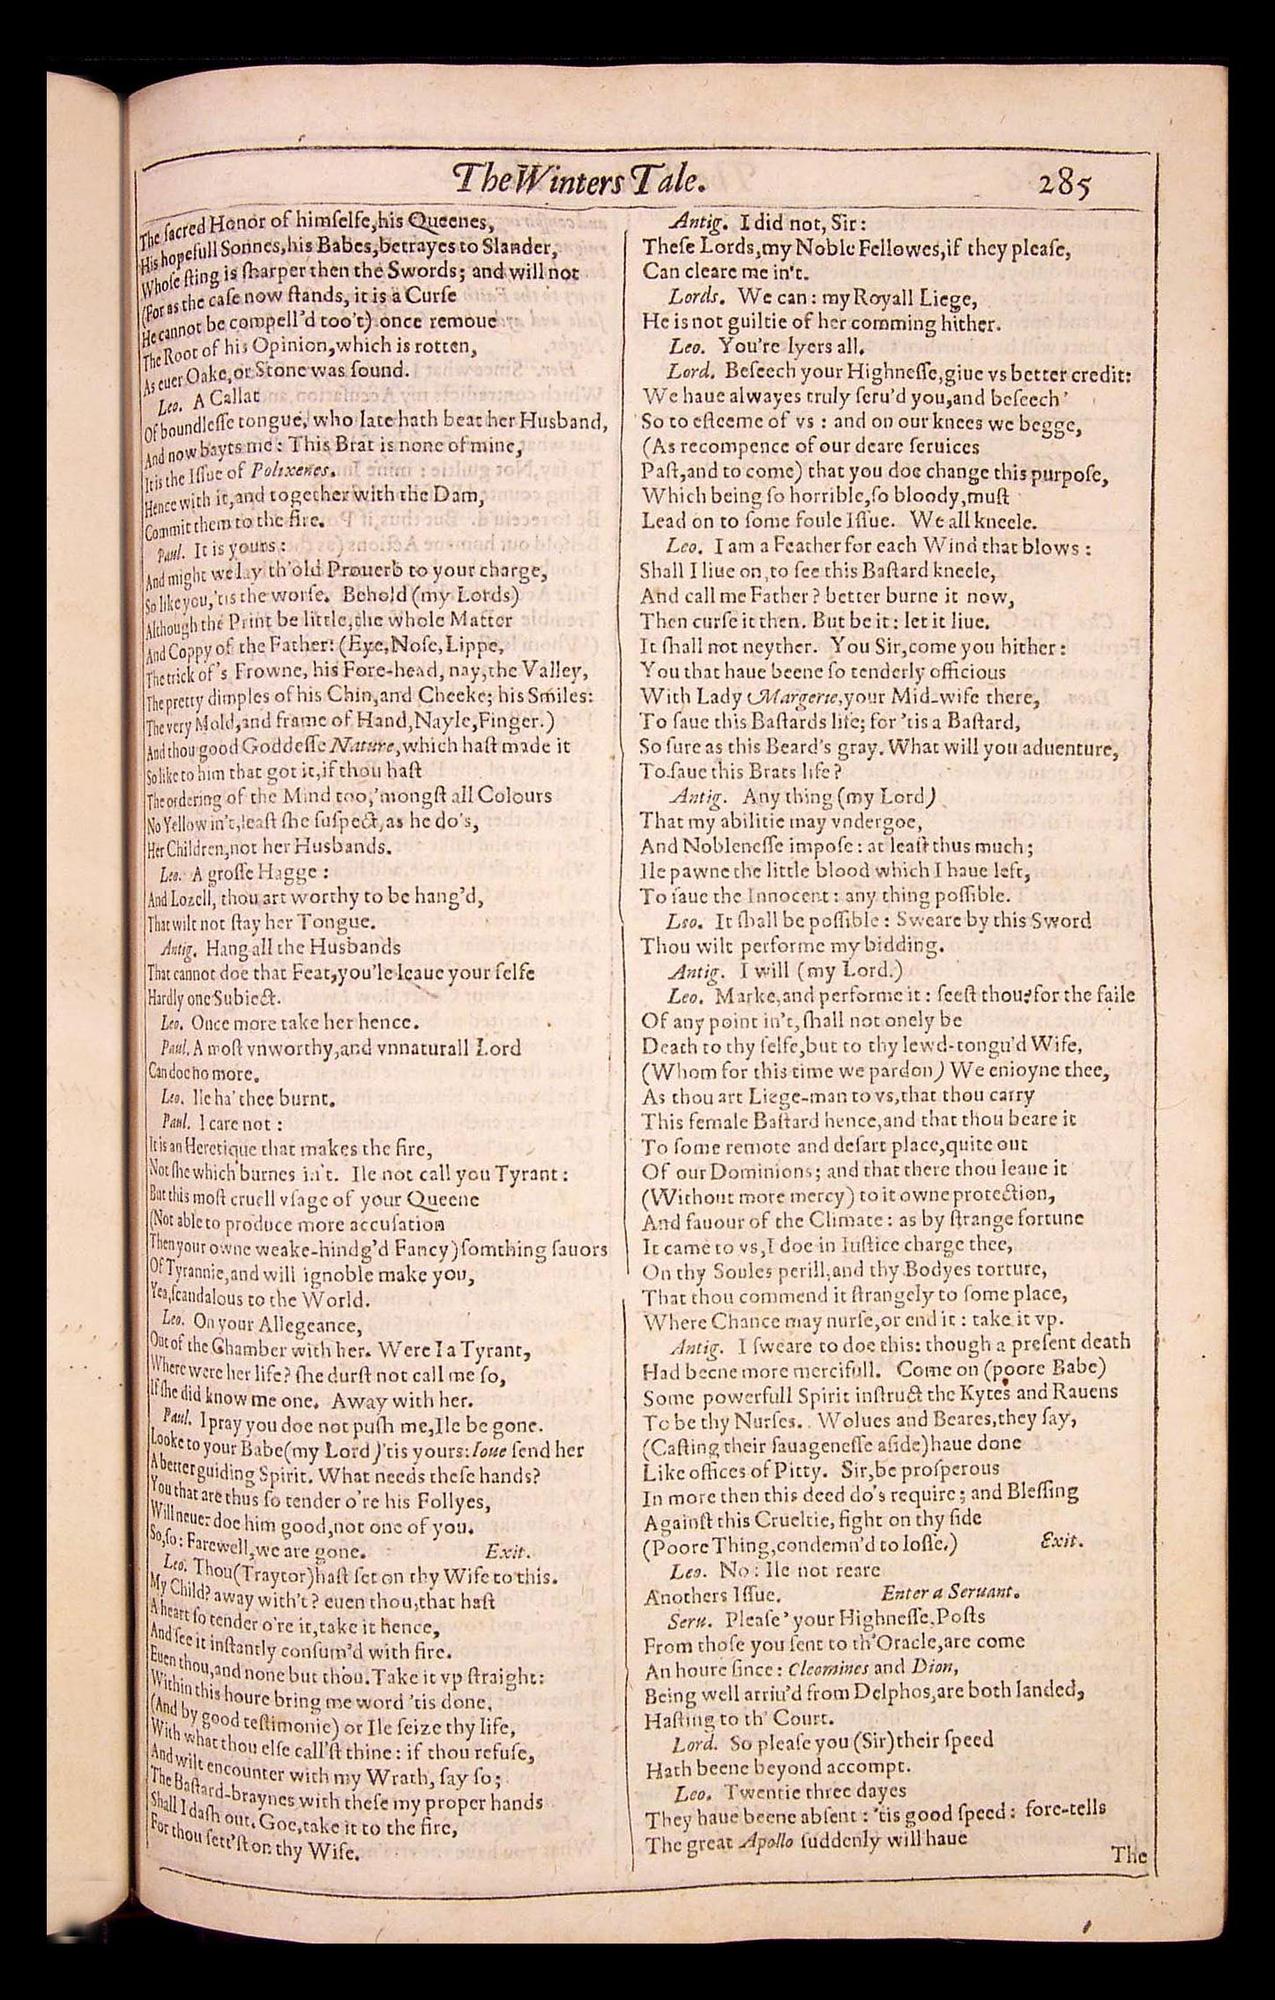 The Winters Tale. 285
The sacred Honor of himselfe,his Queenes,
His hopefull Sonnes,his Babes,betrayes to Slander,
Whose sting is sharper then the Swords; and will not
(For as the case now stands, it is a Curse
He cannot be compell'd too't) once remoue
The Root of his Opinion,which is rotten,
As euer Oake,or Stone was sound.
Leo. A Callat
Of boundlesse tongue, who late hath beat her Husband,
And now bayts me: This Brat is none of mine,
It is the Issue of Polixenes.
Hence with it,and together with the Dam,
Commit them to the fire.
Paul. It is yours:
And might we lay th'old Prouerb to your charge,
So like you,'tis the worse. Behold (my Lords)
Although the Print be little,the whole Matter
And Coppy of the Father: (Eye,Nose,Lippe,
The trick of's Frowne, his Fore-head, nay,the Valley,
The pretty dimples of his Chin,and Cheeke; his Smiles:
The very Mold,and frame of Hand,Nayle,Finger.)
And thou good Goddesse Nature,which hast made it
So like to him that got it,if thou hast
The ordering of the Mind too,'mongst all Colours
No Yellow in't,least she suspect,as he do's,
Her Children,not her Husbands.
Leo. A grosse Hagge:
And Lozell, thou art worthy to be hang'd,
That wilt not stay her Tongue.
Antig. Hang all the Husbands
That cannot doe that Feat,you'le leaue your selfe
Hardly one Subiect.
Leo. Once more take her hence.
Paul. A most vnworthy,and vnnaturall Lord
Can doe no more.
Leo. Ile ha' thee burnt.
Paul. I care not:
It is an Heretique that makes the fire,
Not she which burnes in't. Ile not call you Tyrant:
But this most cruell vsage of your Queene
(Not able to produce more accusation
Then your owne weake-hindg'd Fancy) somthing sauors
Of Tyrannie,and will ignoble make you,
Yea,scandalous to the World.
Leo. On your Allegeance,
Out of the Chamber with her. Were I a Tyrant,
Where were her life? she durst not call me so,
If she did know me one. Away with her.
Paul. I pray you doe not push me,Ile be gone.
Looke to your Babe(my Lord)'tis yours: Ioue send her
A better guiding Spirit. What needs these hands?
You that are thus so tender o're his Follyes,
Will neuer doe him good,not one of you.
So,so: Farewell,we are gone. Exit.
Leo. Thou(Traytor)hast set on thy Wife to this.
My Child? away with't? euen thou,that hast
A heart so tender o're it,take it hence,
And see it instantly consum'd with fire.
Euen thou,and none but thou. Take it vp straight:
Within this houre bring me word 'tis done,
(And by good testimonie) or Ile seize thy life,
With what thou else call'st thine: if thou refuse,
And wilt encounter with my Wrath, say so;
The Bastard-braynes with these my proper hands
Shall I dash out. Goe,take it to the fire,
For thou sett'st on thy Wife.
Antig. I did not, Sir:
These Lords,my Noble Fellowes,if they please,
Can cleare me in't.
Lords. We can: my Royall Liege,
He is not guiltie of her comming hither.
Leo. You're lyers all.
Lord. Beseech your Highnesse,giue vs better credit:
We haue alwayes truly seru'd you,and beseech'
So to esteeme of vs: and on our knees we begge,
(As recompence of our deare seruices
Past,and to come) that you doe change this purpose,
Which being so horrible,so bloody,must
Lead on to some foule Issue. We all kneele.
Leo. I am a Feather for each Wind that blows:
Shall I liue on,to see this Bastard kneele,
And call me Father? better burne it now,
Then curse it then. But be it: let it liue.
It shall not neyther. You Sir,come you hither:
You that haue beene so tenderly officious
With Lady Margerie,your Mid-wife there,
To saue this Bastards life; for 'tis a Bastard,
So sure as this Beard's gray. What will you aduenture,
To saue this Brats life?
Antig. Any thing (my Lord)
That my abilitie may vndergoe,
And Noblenesse impose: at least thus much;
Ile pawne the little blood which I haue left,
To saue the Innocent: any thing possible.
Leo. It shall be possible: Sweare by this Sword
Thou wilt performe my bidding.
Antig. I will (my Lord.)
Leo. Marke,and performe it: seest thou? for the faile
Of any point in't, shall not onely be
Death to thy selfe,but to thy lewd-tongu'd Wife,
(Whom for this time we pardon) We enioyne thee,
As thou art Liege-man to vs,that thou carry
This female Bastard hence,and that thou beare it
To some remote and desart place,quite out
Of our Dominions; and that there thou leaue it
(Without more mercy) to it owne protection,
And fauour of the Climate: as by strange fortune
It came to vs,I doe in Iustice charge thee,
On thy Soules perill,and thy Bodyes torture,
That thou commend it strangely to some place,
Where Chance may nurse,or end it: take it vp.
Antig. I sweare to doe this: though a present death
Had beene more mercifull. Come on (poore Babe)
Some powerfull Spirit instruct the Kytes and Rauens
To be thy Nurses. Wolues and Beares,they say,
(Casting their sauagenesse aside)haue done
Like offices of Pitty. Sir,be prosperous
In more then this deed do's require; and Blessing
Against this Crueltie, fight on thy side
(Poore Thing,condemn'd to losse.) Exit.
Leo. No: Ile not reare
Anothers Issue. Enter a Seruant.
Seru. Please' your Highnesse,Posts
From those you sent to th'Oracle,are come
An houre since: Cleomines and Dion,
Being well arriu'd from Delphos,are both landed,
Hasting to th' Court.
Lord. So please you (Sir)their speed
Hath beene beyond accompt.
Leo. Twentie three dayes
They haue beene absent: 'tis good speed: fore-tells
The great Apollo suddenly will haue
The